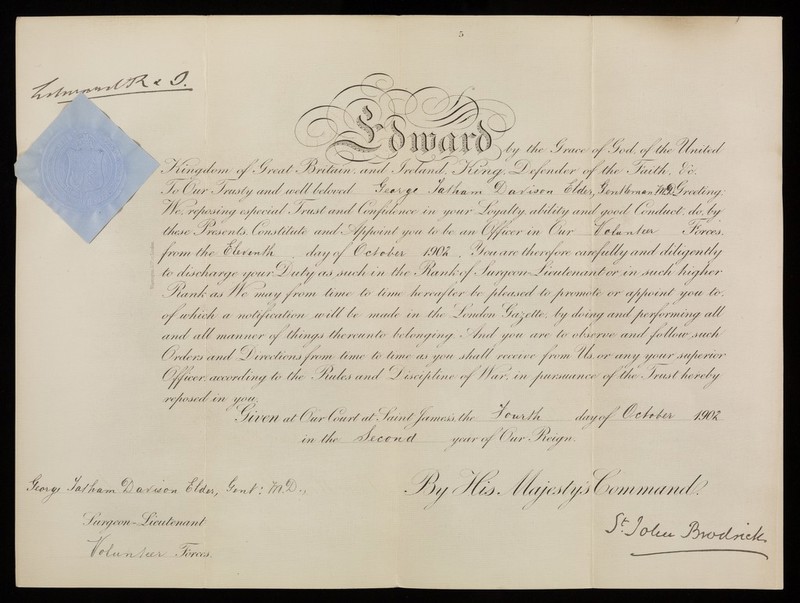 5
Edward R & I.
Edward by the Grace of God, of the United
Kingdom of Great Britain, and Ireland, King, Defender of the Faith, &c.
To Our Trusty and well beloved George Tatham Davison Elder, Gentleman M.D. Greeting:
We, reposing especial Trust and Confidence in your Loyalty, ability and good Conduct, do, by
these Presents, Constitute and Appoint you to be an Officer in Our Volunteer Forces,
from the Eleventh day of October 1902. You are therefore carefully and diligently
to discharge your Duty as such in the Rank of Surgeon-Lieutenant or in such higher
Rank as We may from time to time hereafter be pleased to promote or appoint you to,
of which a notification will be made in the London Gazette, by doing and performing all
and all manner of things thereunto belonging. And you are to observe and follow such
Orders and Directions from time to time as you shall receive from Us, or any your superior
Officer, according to the Rules and Discipline of War, in pursuance of the Trust hereby
reposed in you.
Given at Our Court at Saint James's, the Fourth day of October 1902
in the Second year of Our Reign.
George Tatham Davison Elder, Gent: M.D.,
Surgeon-Lieutenant
Volunteer Forces.
By His Majesty's Command.
St. John Brodrick